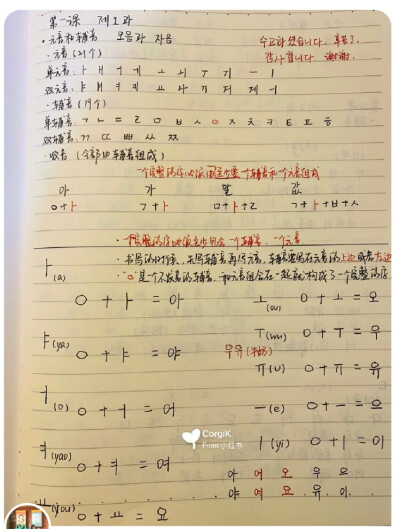 第一课 제 1 과
·元音和辅音 모음과 자음
수고하셨습니다. 辛苦了.
·元音(21个)
감사합니다 谢谢.
单元音: ㅏ ㅐ ㅓ ㅔ ㅗ ㅚ ㅜ ㅟ ㅡ ㅣ
双元音:
·辅音(19个)
单辅音: ㄱ ㄴ ㄷ ㄹ ㅁ ㅂ ㅅ ㅇ ㅈ ㅊ ㅋ ㅌ ㅍ ㅎ
双辅音: ㄲ ㄸ ㅃ ㅆ ㅉ
·收音(全部由辅音组成)
一个完整的 一个辅音和一个元音组成
아 가 발 값
ㅇ+ㅏ ㄱ+ㅏ ㅁ+ㅏ+ㄹ ㄱ+ㅏ+ㅂ+ㅅ
一个完整的 一个辅音,一个元音
ㅏ(a)
·书写的时候,先写辅音再写元音,辅音要写在元音的上边或者左边
·"ㅇ"是个不发音的辅音,和元音组合在一起就构成了一个完整的
ㅇ+ㅏ=아
ㅗ(ou) ㅇ+ㅗ=오
ㅑ(ya) ㅇ+ㅑ=야
ㅜ(wu) ㅇ+ㅜ=우
우유(牛奶)
ㅠ(U) ㅇ+ㅠ=유
ㅓ(o) ㅇ+ㅓ=어
ㅡ(e) ㅇ+ㅡ=으
CorgiK
From 小红书
ㅕ(yao) ㅇ+ㅕ=여
ㅣ(yi) ㅇ+ㅣ=이
아 어 오 우 으
야 여 요 유 이
ㅛ(you) ㅇ+ㅛ=요